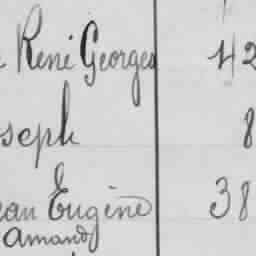 René Georges 42
seph 8
ean Eugène 38
Amand